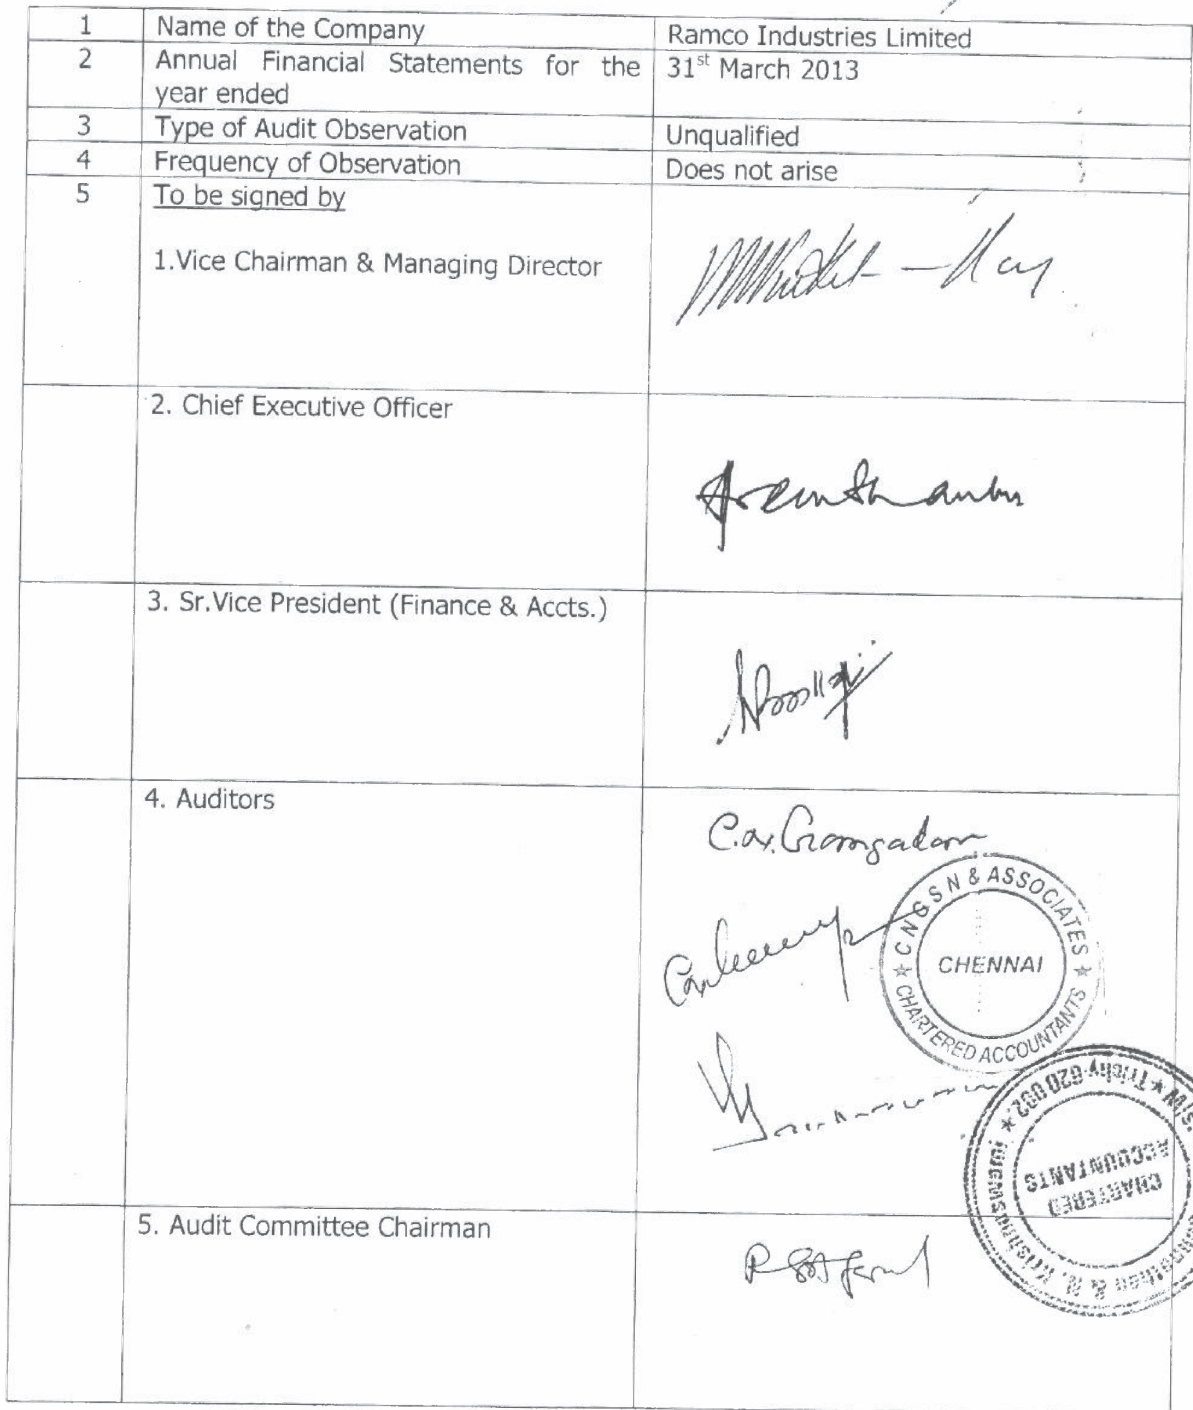 1 Name of the Company Ramco Industries Limited
2 Annual Financial Statements for the 31st March 2013
year ended
3 Type of Audit Observation Unqualified
4 Frequency of Observation Does not arise
5 To be signed by
1.Vice Chairman & Managing Director
2. Chief Executive Officer
3. Sr.Vice President (Finance & Accts.)
4. Auditors
C N G S N & ASSOCIATES
CHENNAI
CHARTERED ACCOUNTANTS
Trichy-620 002.
CHARTERED
ACCOUNTANTS
5. Audit Committee Chairman